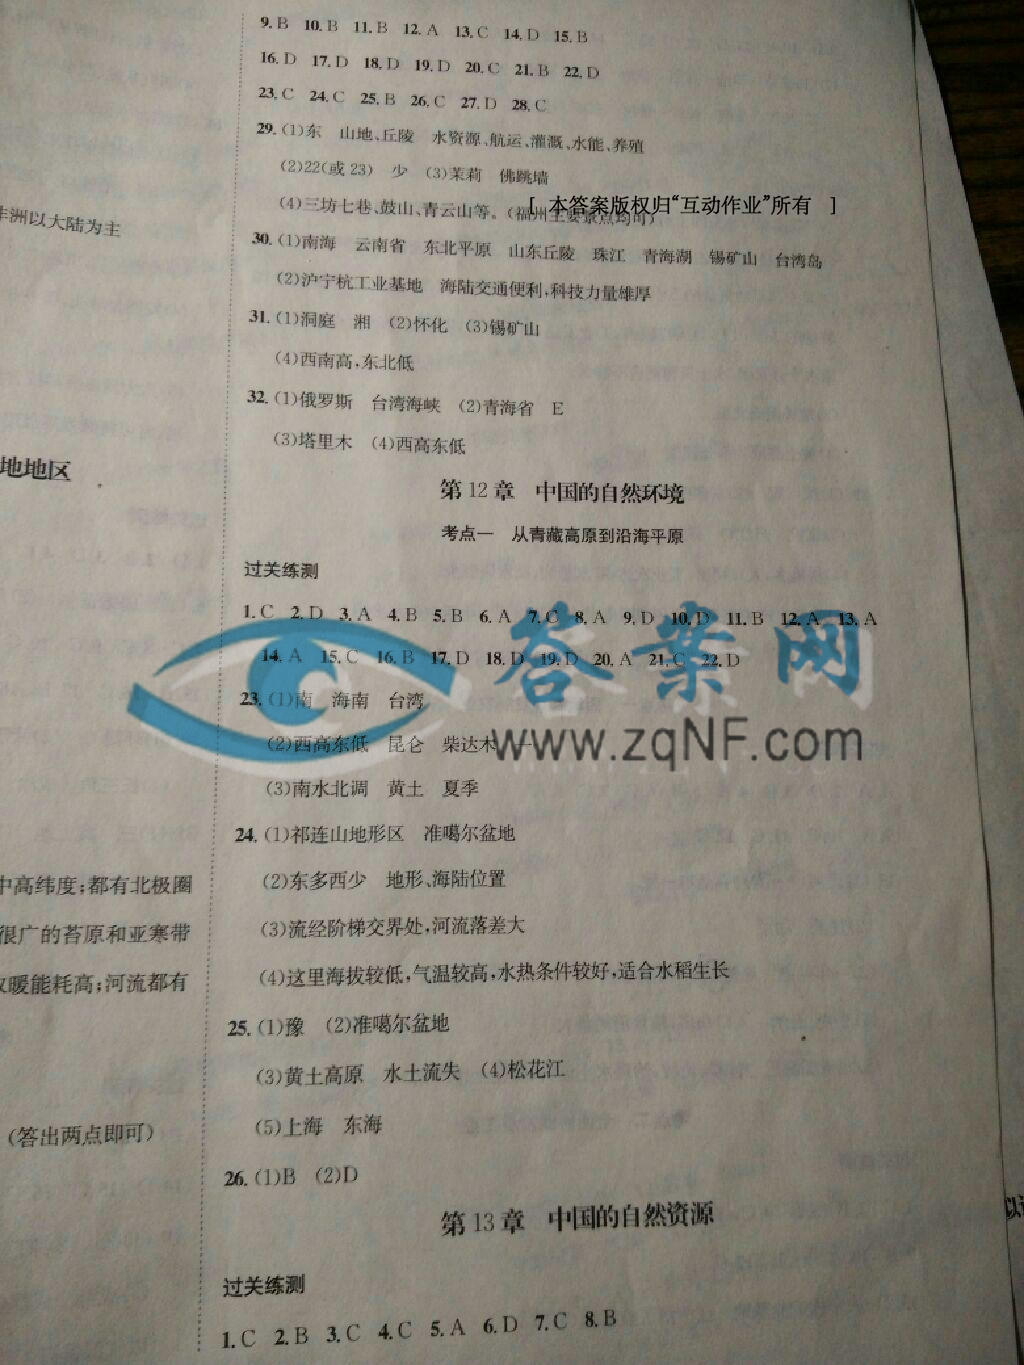 9. B 10. B 11. B 12. A 13. C 14. D 15. B
16. D 17. D 18. D 19. D 20. C 21. B 22. D
23. C 24. C 25. B 26. C 27. D 28. C
29. (1)东 山地、丘陵 水资源、航运、灌溉、水能、养殖
(2)22(或 23) 少 (3)茉莉 佛跳墙
(4)三坊七巷、鼓山、青云山等。(福州主要景点均可)
[ 本答案版权归“互动作业”所有 ]
30. (1)南海 云南省 东北平原 山东丘陵 珠江 青海湖 锡矿山 台湾岛
(2)沪宁杭工业基地 海陆交通便利,科技力量雄厚
31. (1)洞庭 湘 (2)怀化 (3)锡矿山
(4)西南高,东北低
32. (1)俄罗斯 台湾海峡 (2)青海省 E
(3)塔里木 (4)西高东低
第 12 章 中国的自然环境
考点一 从青藏高原到沿海平原
过关练测
1. C 2. D 3. A 4. B 5. B 6. A 7. C 8. A 9. D 10. D 11. B 12. A 13. A
14. A 15. C 16. B 17. D 18. D 19. D 20. A 21. C 22. D
23. (1)南 海南 台湾
(2)西高东低 昆仑 柴达木 一
(3)南水北调 黄土 夏季
24. (1)祁连山地形区 准噶尔盆地
(2)东多西少 地形、海陆位置
(3)流经阶梯交界处,河流落差大
(4)这里海拔较低,气温较高,水热条件较好,适合水稻生长
25. (1)豫 (2)准噶尔盆地
(3)黄土高原 水土流失 (4)松花江
(5)上海 东海
26. (1)B (2)D
第 13 章 中国的自然资源
过关练测
1. C 2. B 3. C 4. C 5. A 6. D 7. C 8. B
非洲以大陆为主
地地区
中高纬度;都有北极圈
很广的苔原和亚寒带
暖能耗高;河流都有
(答出两点即可)
答案网
www.zqNF.com